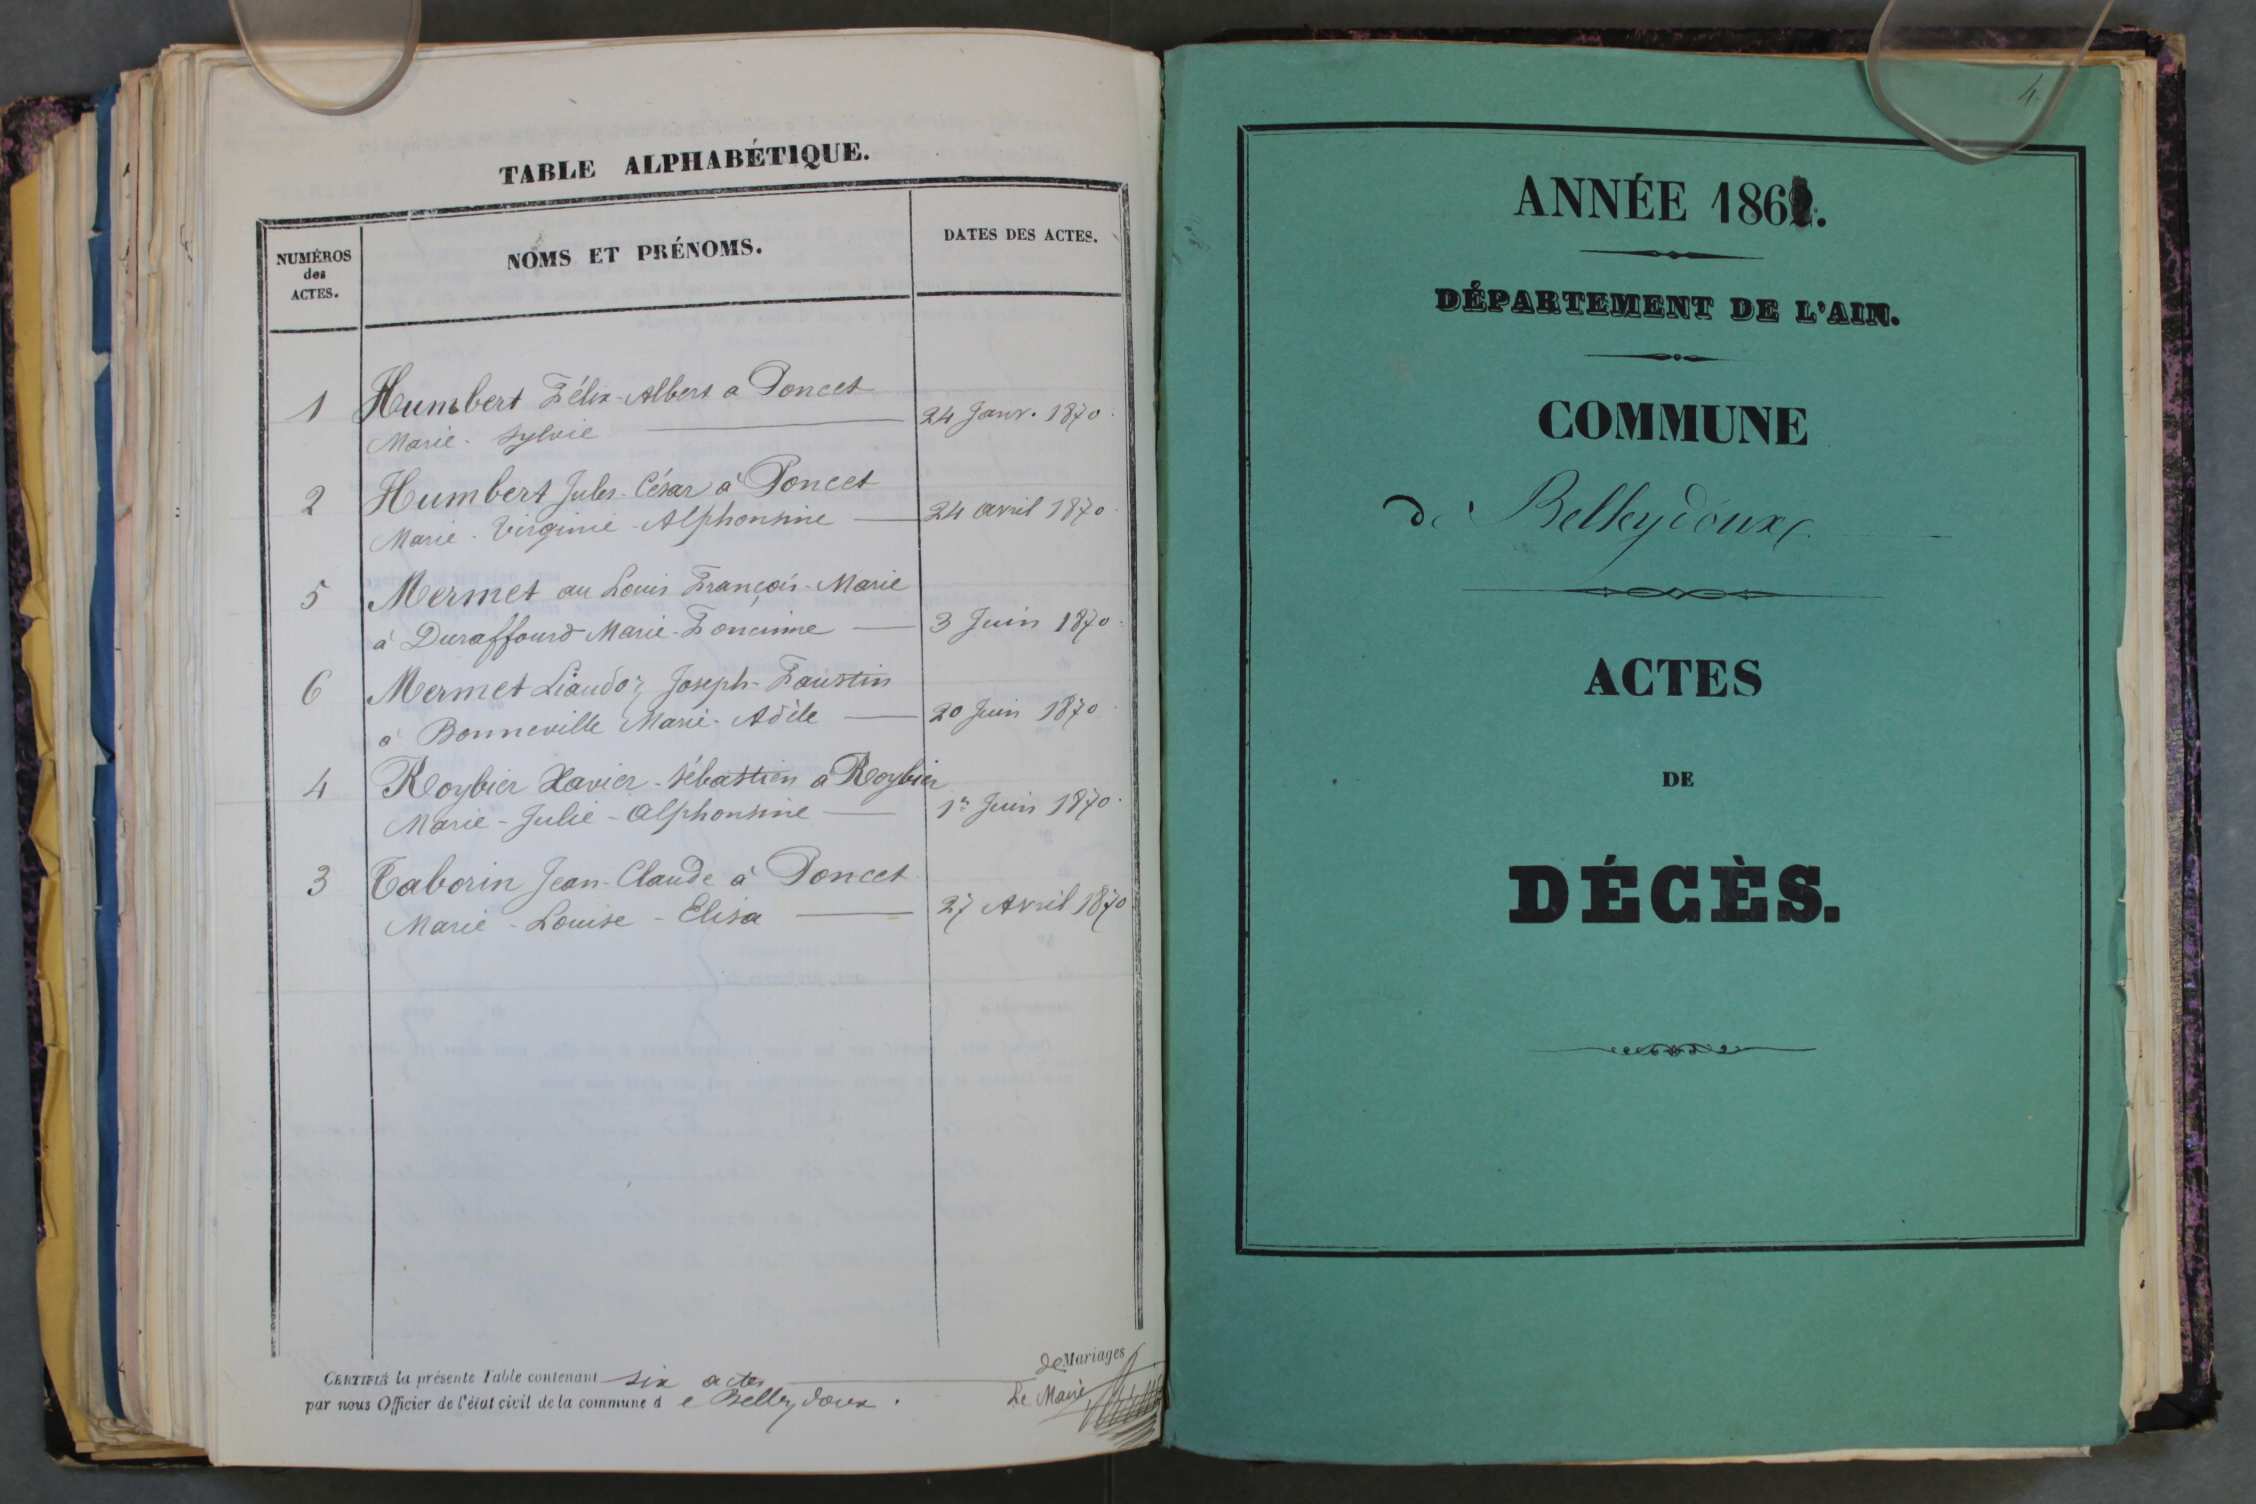 TABLE ALPHABÉTIQUE.
NUMÉROS
des
ACTES.
NOMS ET PRÉNOMS.
DATES DES ACTES.
1 Humbert Félix-Albert a Poncet
Marie-Sylvie 24 Janv. 1870.
2 Humbert Jules-César à Poncet
Marie-Virginie-Alphonsine 24 avril 1870.
5 Mermet au Louis François-Marie
à Duraffourd Marie-Foncinne 3 Juin 1870.
6 Mermet Liaudoz Joseph-Faustin
à Bonneville Marie-Adèle 20 Juin 1870.
4 Roybier Xavier-Sébastien a Roybier
Marie-Julie-Alphonsine 1er Juin 1870.
3 Taborin Jean-Claude à Poncet
Marie-Louise-Elisa 27 Avril 1870
CERTIFIÉ la présente Table contenant six actes de Mariages
par nous Officier de l'état civil de la commune de Belleydoux.
Le Maire
4
ANNÉE 186
DÉPARTEMENT DE L'AIN.
COMMUNE
de Belleydoux
ACTES
DE
DÉCÈS.